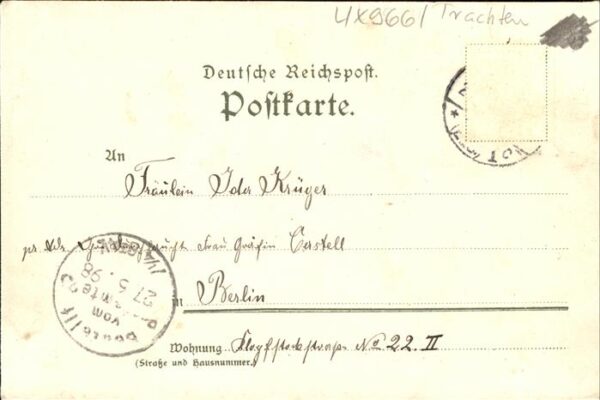 4x966/Trachten
Deutsche Reichspost.
Postkarte.
An
Fräulein Ida Krüger
Frau Gräfin Castell
in Berlin
Wohnung Klopstockstraße No 22. II
(Straße und Hausnummer.)
Bestellt
vom
Postamte 23
27 5. 98